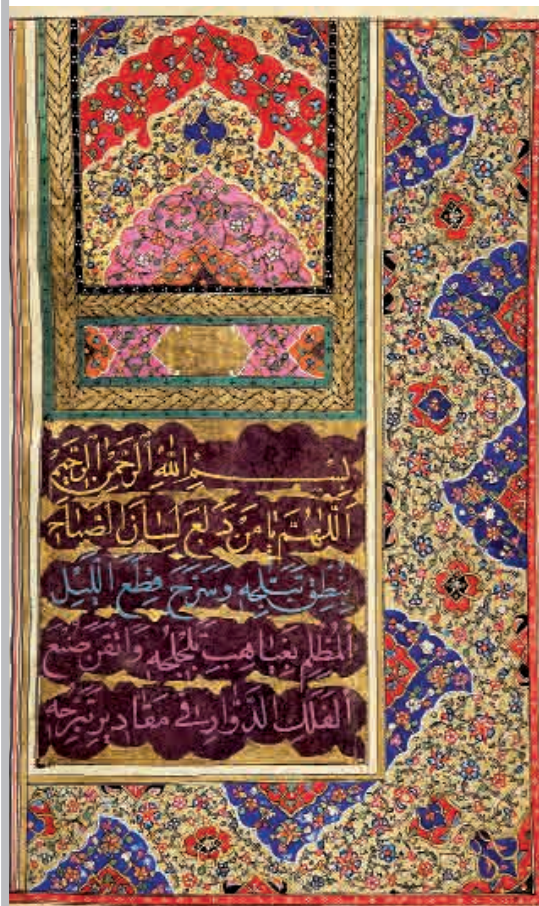 بِسْمِ اللهِ الرَّحْمٰنِ الرَّحِيمِ
اَللّٰهُمَّ يَا مَنْ دَلَعَ لِسَانَ الصَّبَاحِ
بِنُطْقِ تَبَلُّجِهِ وَسَرَّحَ قِطَعَ اللَّيْلِ
الْمُظْلِمِ بِغَيَاهِبِ تَلَجْلُجِهِ وَاَتْقَنَ صُنْعَ
الْفَلَكِ الدَّوَّارِ فِي مَقَادِيرِ تَبَرُّجِهِ